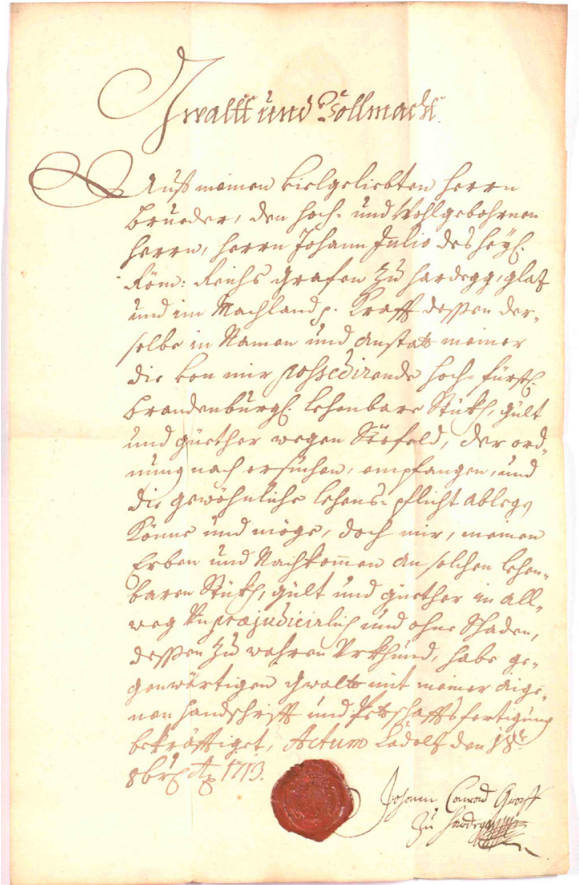 Gwallt und Vollmacht.
Auf meinen vielgeliebten Herrn
Brueder, den Hoch- und Wohlgebohrnen
Herrn, Herrn Johann Julio des Heyl:
Röm: Reichs Grafen zu Hardegg, Glaz
und im Machland p. Krafft dessen der-
selbe in Namen und anstatt meiner
die von mir possedirende Hoch-Fürstl:
Brandenburgl: Lehenbare Stükh, Gült
und güether wegen Seefeld, der ord-
nung nach ersuchen, empfangen, und
die gewöhnliche Lehens-Pflicht ablegen
könne und möge, doch mir, meinen
Erben und Nachkommen an solchen Lehen-
baren Stükh, gült und güether in all-
weg Unpraejudicirlich und ohne Schaden,
dessen zu wahren Urkhund, habe ge-
genwärtigen Gwalt mit meiner aige-
nen Handschrifft und Petschaffts fertigung
bekräfftiget, Actum den 18t
8br: Ao 1713.
Johann Conrad Graff
zu Hardegg